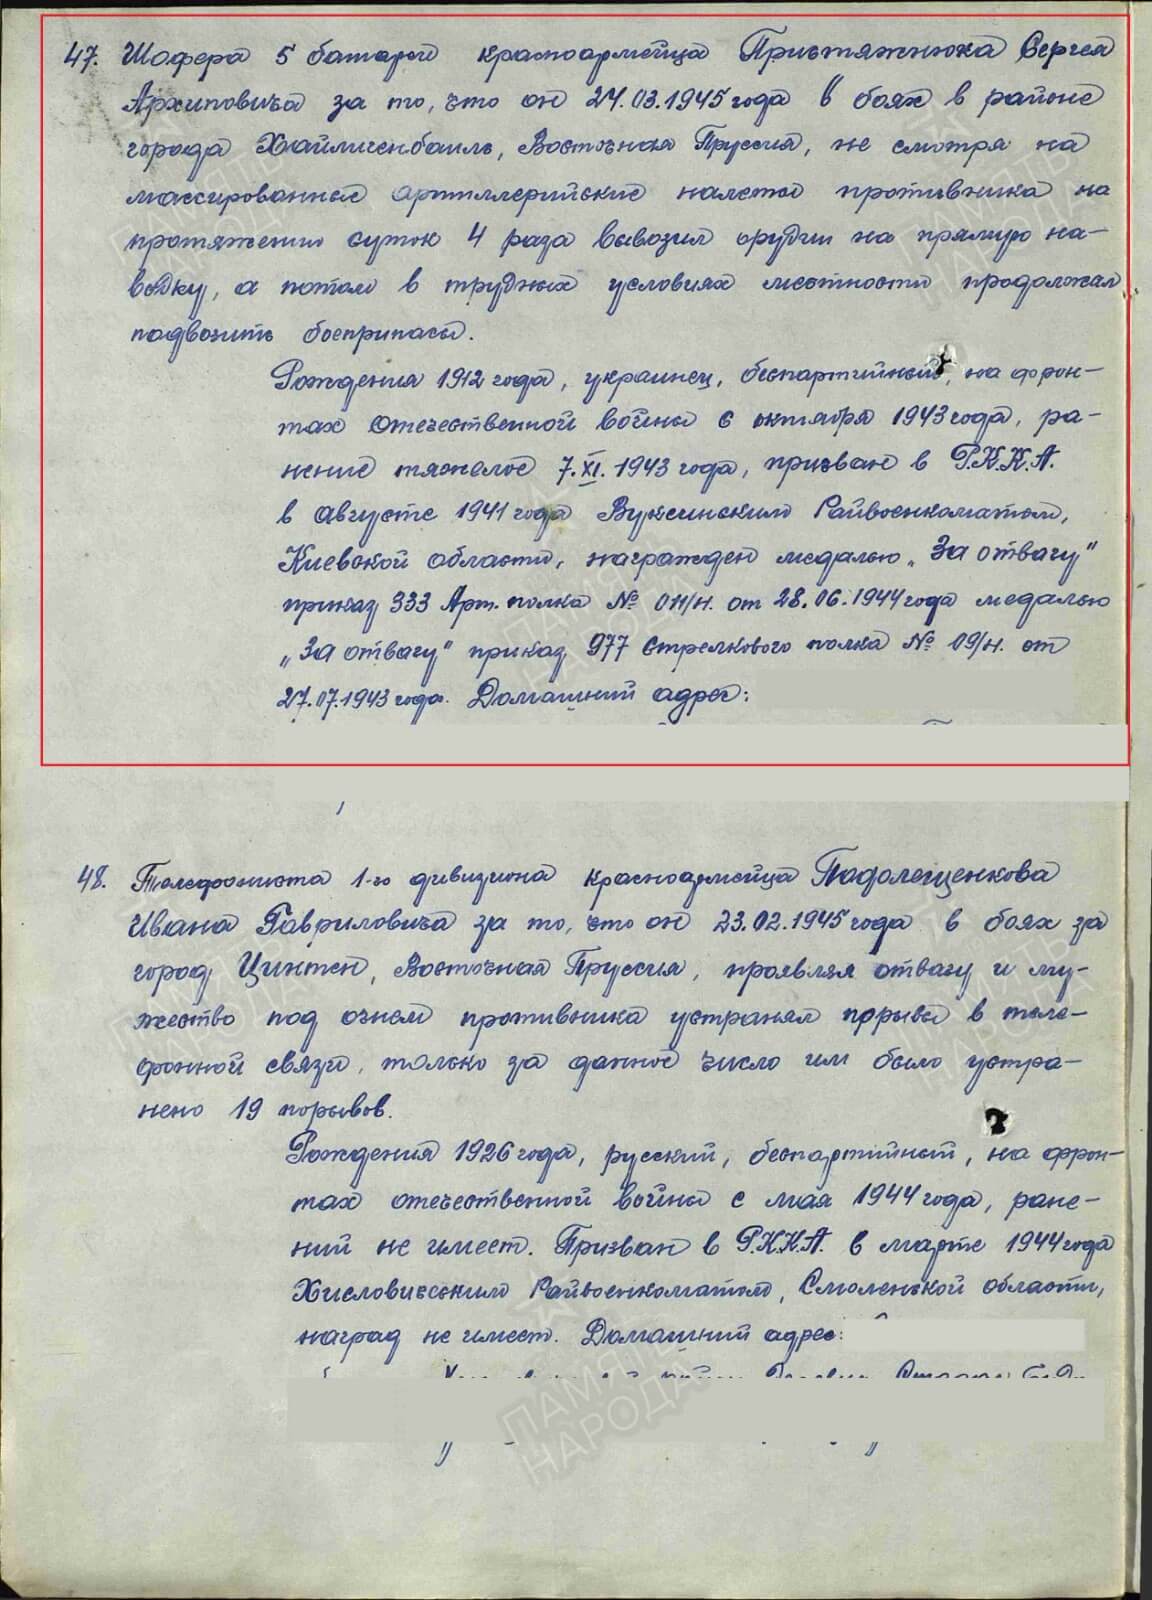 47. Шофера 5 батареи красноармейца Притяжнюка Сергея
Архиповича за то, что он 24.03.1945 года в боях в районе
города Хайлигенбаиль, Восточная Пруссия, не смотря на
массированные артиллерийские налеты противника на
протяжении суток 4 раза вывозил орудия на прямую на-
водку, а потом в трудных условиях местности продолжал
подвозить боеприпасы.
Рождения 1912 года, украинец, беспартийный, на фрон-
тах отечественной войны с октября 1943 года, ра-
нение тяжелое 7.XI.1943 года, призван в Р.К.К.А.
в августе 1941 года Райвоенкоматом,
Киевской области, награжден медалью „За отвагу"
приказ 333 Арт. полка № 011/н. от 28.06.1944 года медалью
„За отвагу" приказ 977 стрелкового полка № 09/н. от
27.07.1943 года. Домашний адрес:
48. Телефониста 1-го дивизиона красноармейца Подолещенкова
Ивана Гавриловича за то, что он 23.02.1945 года в боях за
город Цинтен, Восточная Пруссия, проявляя отвагу и му-
жество под огнем противника устранял порывы в теле-
фонной связи, только за данное число им было устра-
нено 19 порывов.
Рождения 1926 года, русский, беспартийный, на фрон-
тах отечественной войны с мая 1944 года, ране-
ний не имеет. Призван в Р.К.К.А. в марте 1944 года
Хисловичским Райвоенкоматом, Смоленской области,
наград не имеет. Домашний адрес:
ПАМЯТЬ
НАРОДА